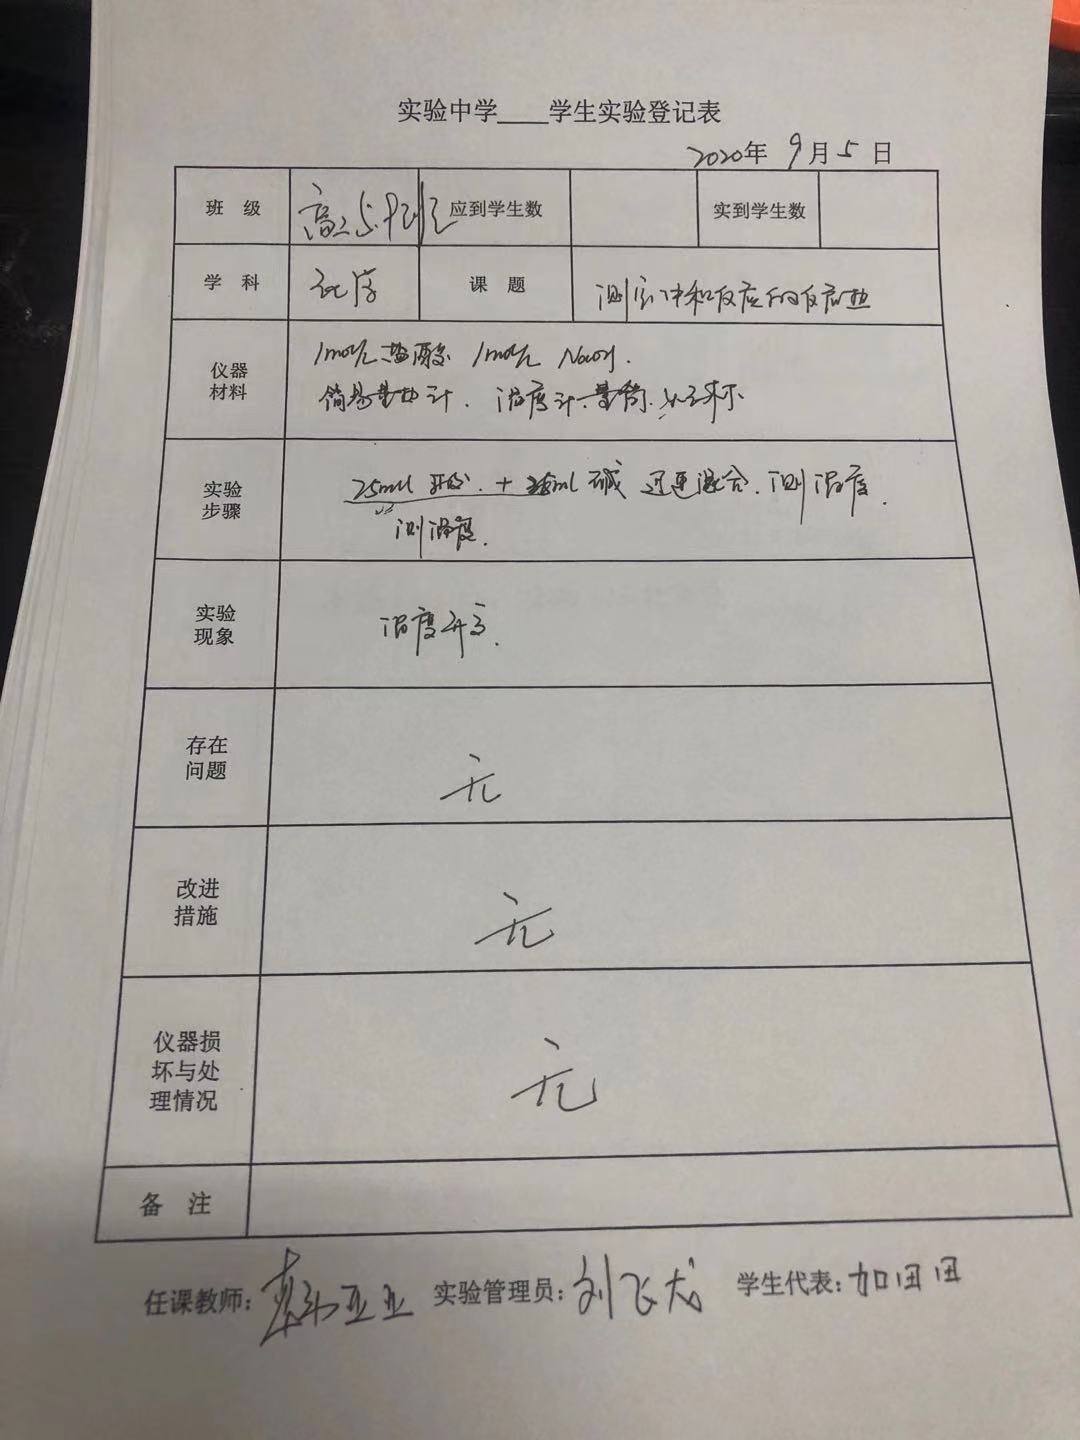 实验中学____学生实验登记表
2020年 9月5日
班 级 高二5.中班 应到学生数 实到学生数
学 科 化学 课 题 测定中和反应的反应热
仪器材料 1mol/L盐酸 1mol/L NaOH.
简易量热计. 温度计、量筒. 烧杯
实验步骤 25ml 酸 + 25ml 碱 迅速混合. 测温度.
测温度.
实验现象 温度升高.
存在问题 无
改进措施 无
仪器损坏与处理情况 无
备 注
任课教师: 亚亚 实验管理员: 刘飞龙 学生代表: 加田田